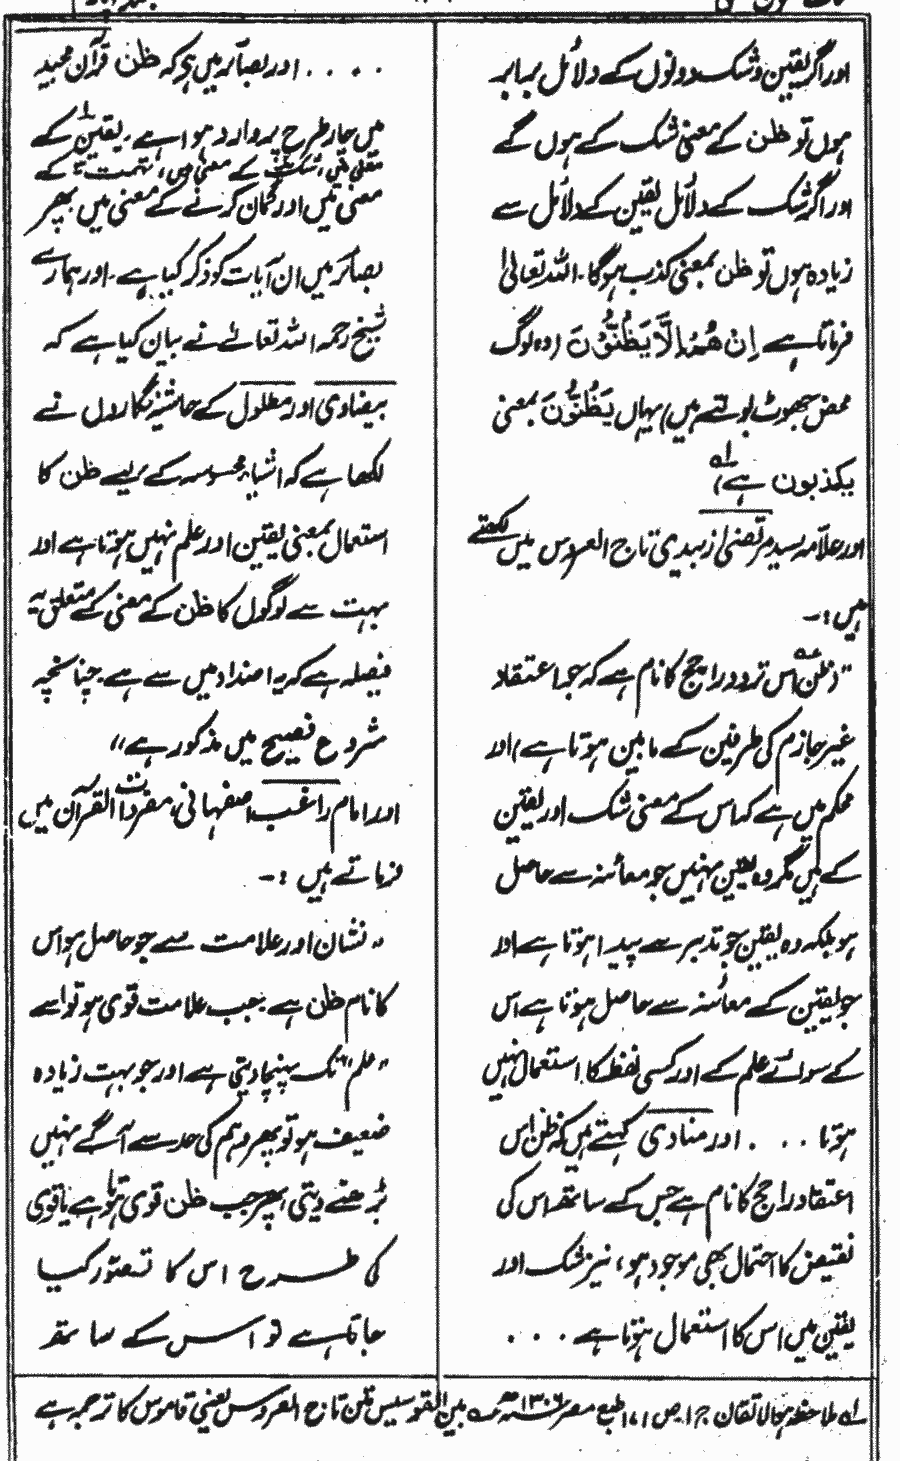 اور اگر یقین و شک دونوں کے دلائل برابر
ہوں تو ظن کے معنی شک کے ہوں گے
اور اگر شک کے دلائل یقین کے دلائل سے
زیادہ ہوں تو ظن بمعنی کذب ہوگا۔ اللہ تعالیٰ
فرماتا ہے اِنْ هُمْ اِلَّا يَظُنُّوْنَ (وہ لوگ
محض جھوٹ بولتے ہیں) یہاں يَظُنُّوْنَ بمعنی
یکذبون ہے
اور علامہ سید مرتضیٰ زبیدی تاج العروس میں لکھتے
ہیں :۔
"ظن اس تردد راجح کا نام ہے کہ جو اعتقاد
غیر جازم کی طرفین کے مابین ہوتا ہے) اور
محکم میں ہے کہ اس کے معنی شک اور یقین
کے ہیں مگر وہ یقین نہیں جو معائنہ سے حاصل
ہو بلکہ وہ یقین جو تدبر سے پیدا ہوتا ہے اور
جو یقین کے معائنہ سے حاصل ہوتا ہے اس
کے سوائے علم کے اور کسی لفظ کا استعمال نہیں
ہوتا . . . اور مناوی کہتے ہیں کہ ظن اس
اعتقاد راجح کا نام ہے جس کے ساتھ اس کی
نقیض کا احتمال بھی موجود ہو، نیز شک اور
یقین میں اس کا استعمال ہوتا ہے . . .
. . . . اور بصائر میں ہے کہ ظن قرآن مجید
میں چار طرح پر وارد ہوا ہے ۔ یقین کے
معنی میں، شک کے معنی میں، تہمت کے
معنی میں اور گمان کرنے کے معنی میں پھر
بصائر میں ان آیات کو ذکر کیا ہے ۔ اور ہمارے
شیخ رحمہ اللہ تعالےٰ نے بیان کیا ہے کہ
بیضاوی اور مطلول کے حاشیہ نگاروں نے
لکھا ہے کہ اشیاء محسوسہ کے لیے ظن کا
استعمال بمعنی یقین اور علم نہیں ہوتا ہے اور
بہت سے لوگوں کا ظن کے معنی کے متعلق یہ
فیصلہ ہے کہ یہ اضداد میں سے ہے۔ چنانچہ
شروع فصیح میں مذکور ہے"
اور امام راغب اصفہانی، مفردات القرآن میں
فرماتے ہیں :۔
"نشان اور علامت سے جو حاصل ہو اس
کا نام ظن ہے جب علامت قوی ہو تو اسے
"علم" تک پہنچا دیتی ہے اور جو بہت زیادہ
ضعیف ہو تو پھر وہم کی حد سے آگے نہیں
بڑھنے دیتی، پھر جب ظن قوی ہوتا ہے یا قوی
کی طرح اس کا تصور کیا
جاتا ہے تو اس کے ساتھ
لہ ملاحظہ ہو الاتقان ج ۱ ص ، طبع مصر ۱۳۰۶ھ ۲ بین القوسین متن تاج العروس یعنی قاموس کا ترجمہ ہے